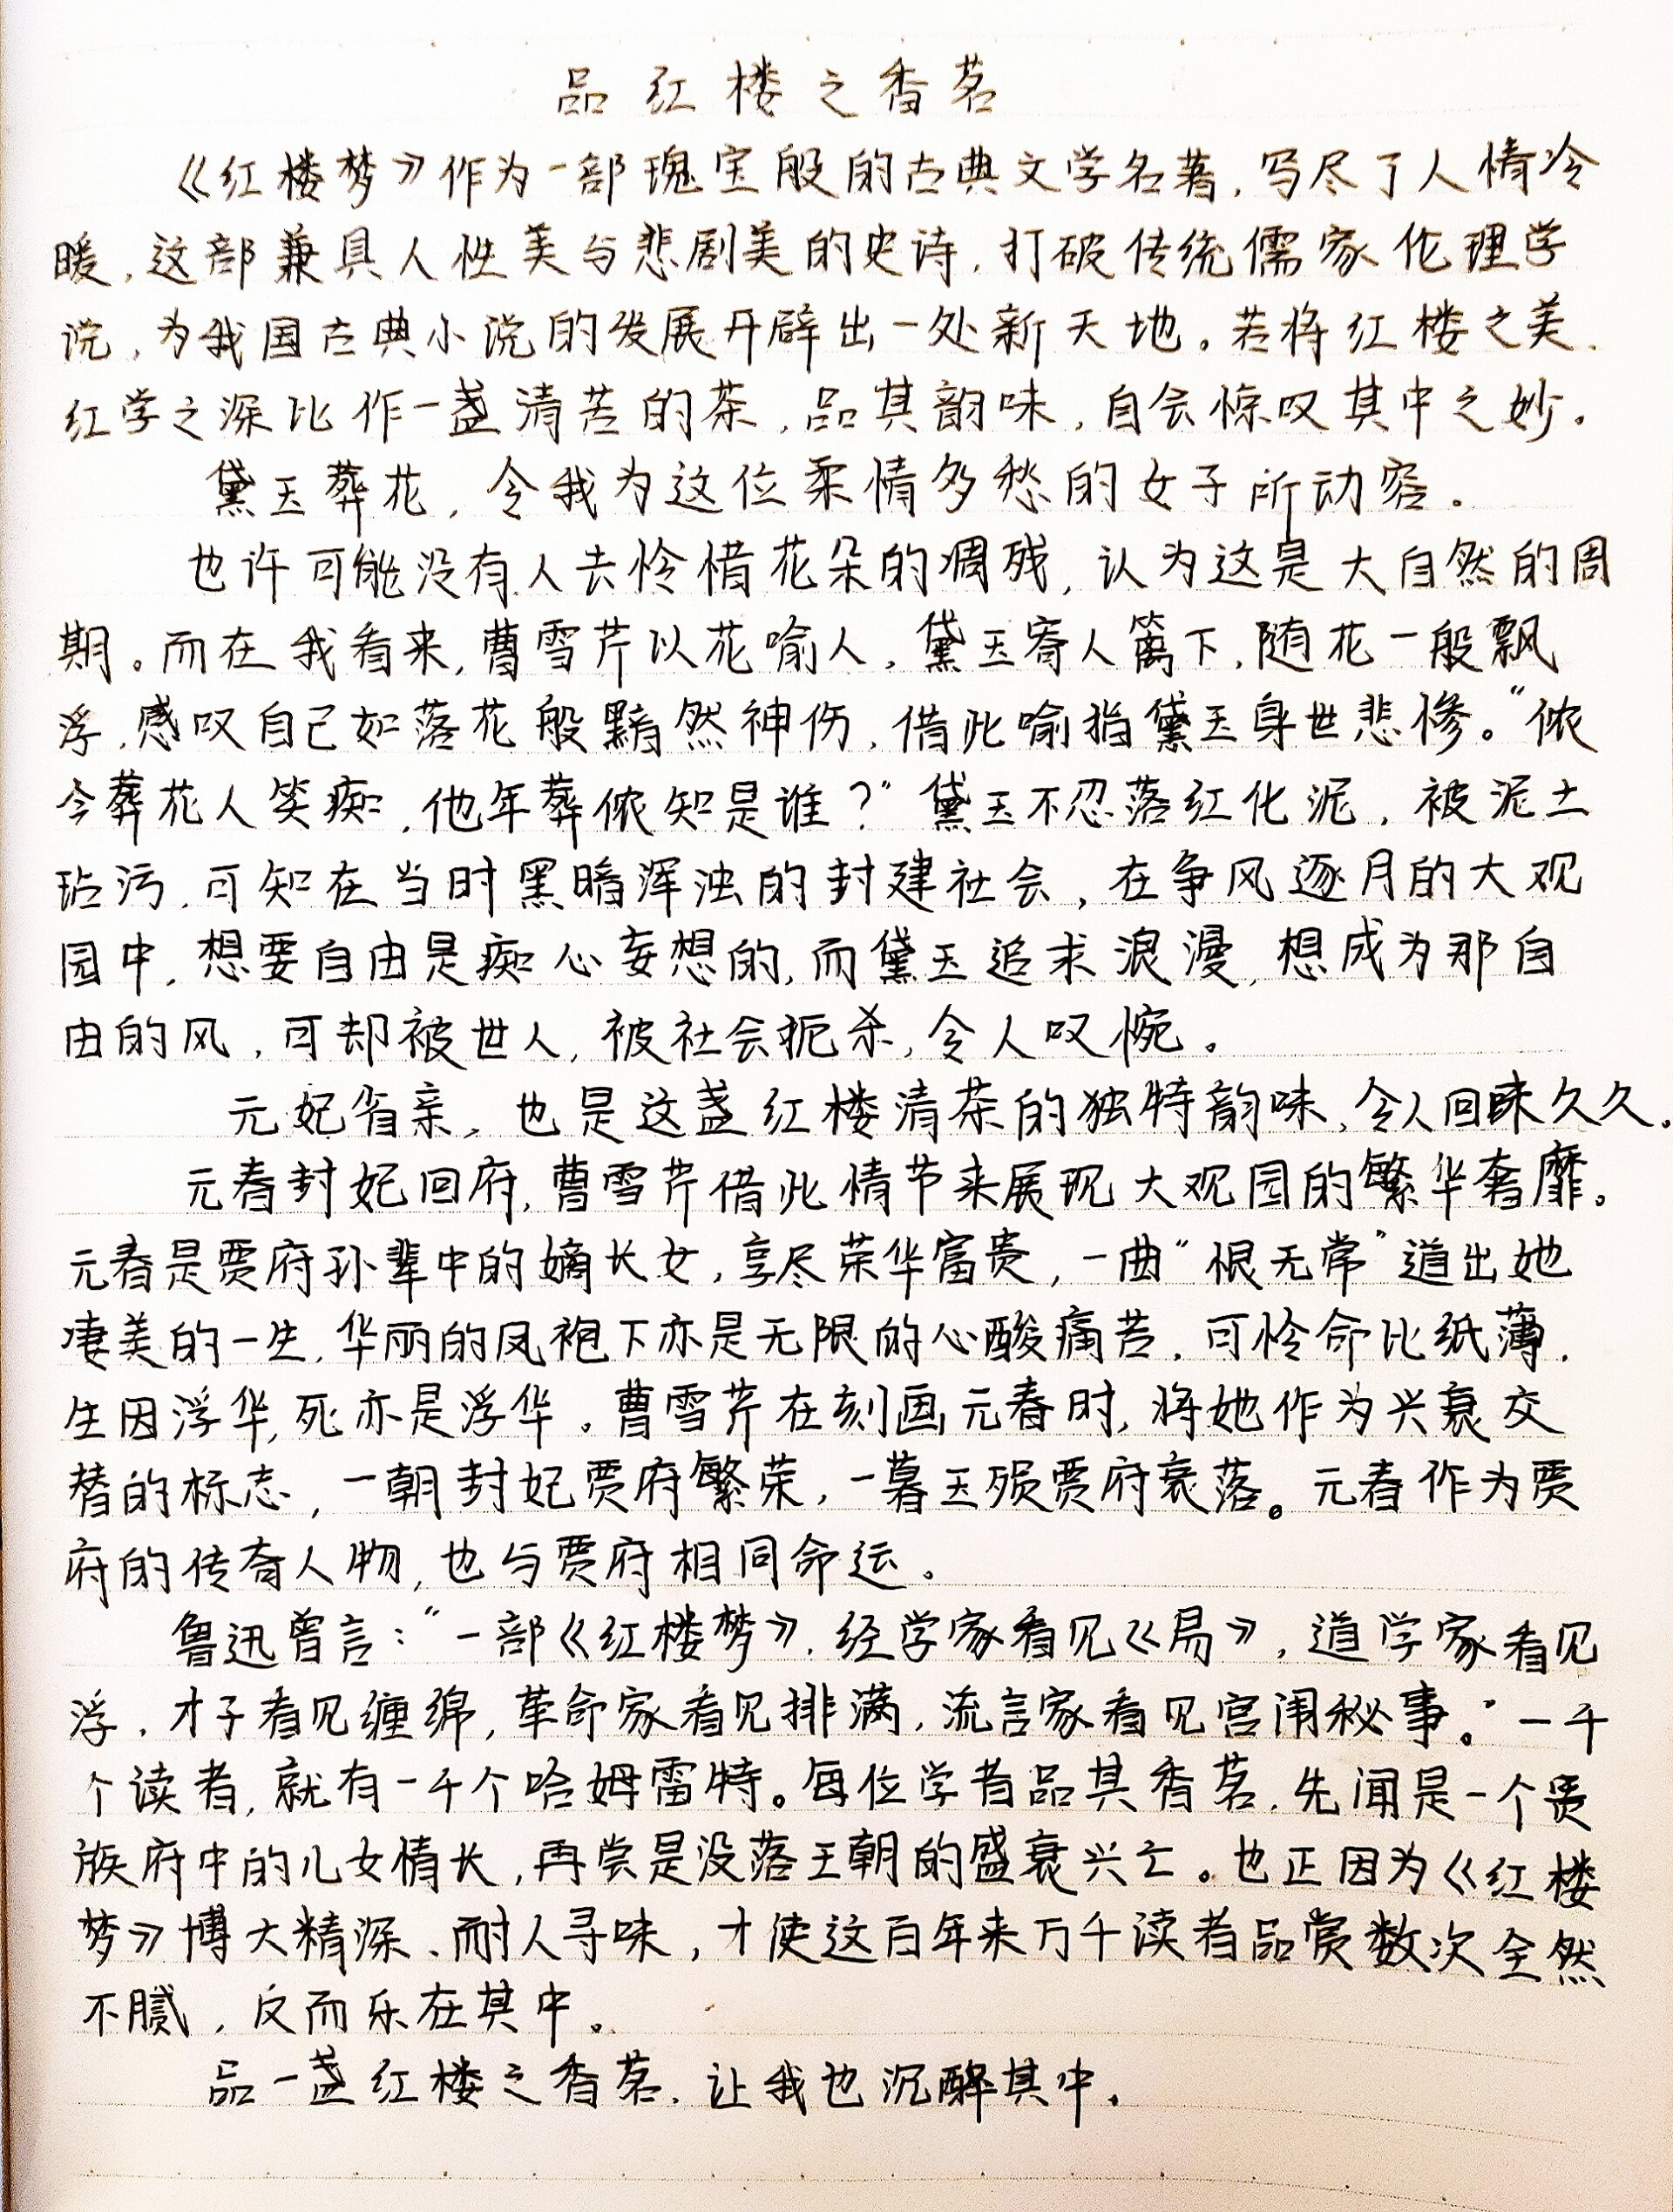 品红楼之香茗
《红楼梦》作为一部瑰宝般的古典文学名著,写尽了人情冷
暖,这部兼具人性美与悲剧美的史诗,打破传统儒家伦理学
说,为我国古典小说的发展开辟出一处新天地。若将红楼之美、
红学之深比作一盏清苦的茶,品其韵味,自会惊叹其中之妙。
黛玉葬花,令我为这位柔情多愁的女子所动容。
也许可能没有人去怜惜花朵的凋残,认为这是大自然的周
期。而在我看来,曹雪芹以花喻人,黛玉寄人篱下,随花一般飘
浮,感叹自己如落花般黯然神伤,借此喻指黛玉身世悲惨。“侬
今葬花人笑痴,他年葬侬知是谁?”黛玉不忍落红化泥,被泥土
玷污,可知在当时黑暗浑浊的封建社会,在争风逐月的大观
园中,想要自由是痴心妄想的,而黛玉追求浪漫,想成为那自
由的风,可却被世人,被社会扼杀,令人叹惋。
元妃省亲,也是这盏红楼清茶的独特韵味,令人回味久久。
元春封妃回府,曹雪芹借此情节来展现大观园的繁华奢靡。
元春是贾府孙辈中的嫡长女,享尽荣华富贵,一曲“恨无常”道出她
凄美的一生,华丽的凤袍下亦是无限的心酸痛苦,可怜命比纸薄,
生因浮华,死亦是浮华。曹雪芹在刻画元春时,将她作为兴衰交
替的标志,一朝封妃贾府繁荣,一暮玉殒贾府衰落。元春作为贾
府的传奇人物,也与贾府相同命运。
鲁迅曾言:“一部《红楼梦》,经学家看见《易》,道学家看见
浮,才子看见缠绵,革命家看见排满,流言家看见宫闱秘事。”一千
个读者,就有一千个哈姆雷特。每位学者品其香茗,先闻是一个贵
族府中的儿女情长,再尝是没落王朝的盛衰兴亡。也正因为《红楼
梦》博大精深、耐人寻味,才使这百年来万千读者品赏数次全然
不腻,反而乐在其中。
品一盏红楼之香茗,让我也沉醉其中。